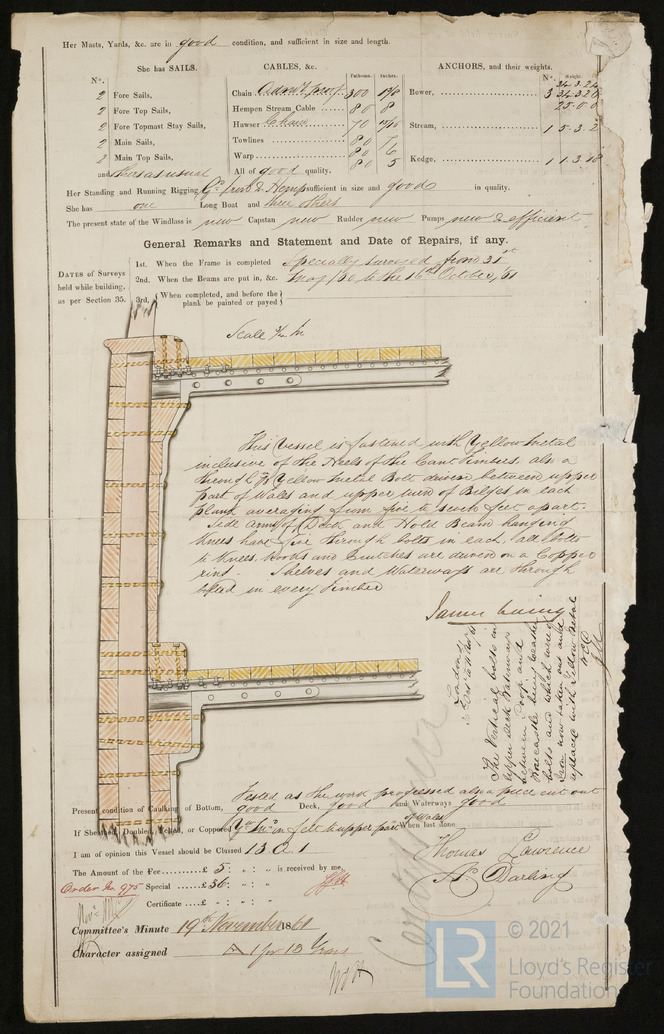 Her Masts, Yards, &c. are in good condition, and sufficient in size and length.
She has SAILS.
CABLES, &c.
Fathoms. Inches.
ANCHORS, and their weights.
Nº. Weight.
Nº.
2 Fore Sails,
2 Fore Top Sails,
2 Fore Topmast Stay Sails,
2 Main Sails,
2 Main Top Sails,
and others as usual
Chain 300
Hempen Stream Cable 80 8
Hawser Chain 70
Towlines 80
Warp 80 6
80 5
All of good quality.
Bower, 3
25.0.0
Stream, 1 5.3.2
Kedge, 1 1.3.18
Her Standing and Running Rigging & Hemp sufficient in size and good in quality.
She has one Long Boat and three others
The present state of the Windlass is new Capstan new Rudder new Pumps new & efficient
General Remarks and Statement and Date of Repairs, if any.
DATES of Surveys held while building, as per Section 35.
1st. When the Frame is completed Specially surveyed from 31st
2nd. When the Beams are put in, &c. May /60 to the 16th October /61
3rd. When completed, and before the plank be painted or payed
Scale ¾ In
This Vessel is fastened with Yellow Metal
inclusive of the Heels of the Cant Timbers also a
through Yellow Metal Bolt driven between upper
part of Wales and upper turn of Bilges in each
plank averaging from five to seven feet apart.
Side arms of Deck and Hold Beam hanging
Knees have five through bolts in each, all bolts
to Knees, Hooks and Crutches are driven on a Copper
ring. Shelves and Waterways are through
bolted in every Timber
James Laing
London
The Vertical bolts in
upper deck Waterways
between Poop and
Forecastle being
bolts and which were
Iron now taken out and
replaced with Yellow Metal
Tested as the work progressed also a piece cut out
of Wales
Present condition of Caulking of Bottom, good Deck, good and Waterways good
If Sheathed, Doubled, Felted, or Coppered Y. M. on felt to upper part When last done
I am of opinion this Vessel should be Classed 13 A 1
Thomas Lawrence
The Amount of the Fee......£ 5 : " : " is received by me,
Order No 975 Special ......£ 36 : " : "
Darling
Certificate ...£ : :
Committee's Minute 19th November 1861
Character assigned A 1 for 13 Years
LR
© 2021
Lloyd's Register
Foundation